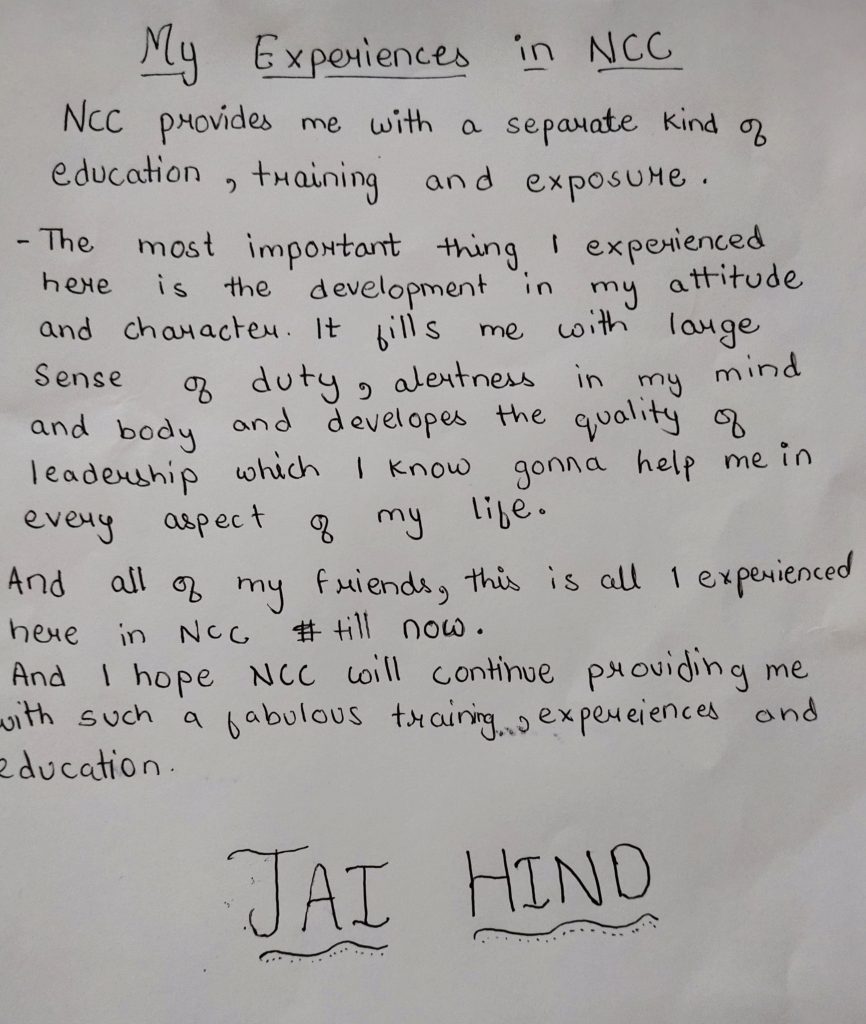 My Experiences in NCC
NCC provides me with a separate kind of
education , training and exposure .
- The most important thing I experienced
here is the development in my attitude
and character. It fills me with large
Sense of duty , alertness in my mind
and body and developes the quality of
leadership which I know gonna help me in
every aspect of my life.
And all of my friends, this is all I experienced
here in NCC till now .
And I hope NCC will continue providing me
with such a fabulous training , expereiences and
education .
JAI HIND